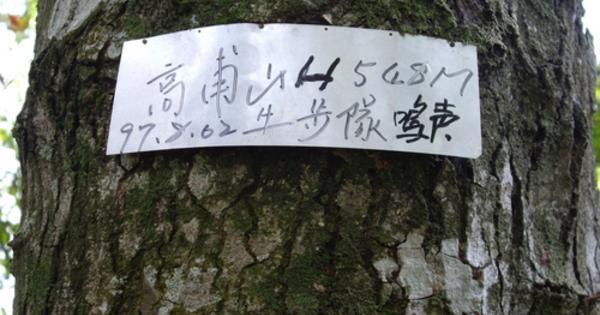 高甫山 H 548M
97.8.02 牛步隊 鳴声